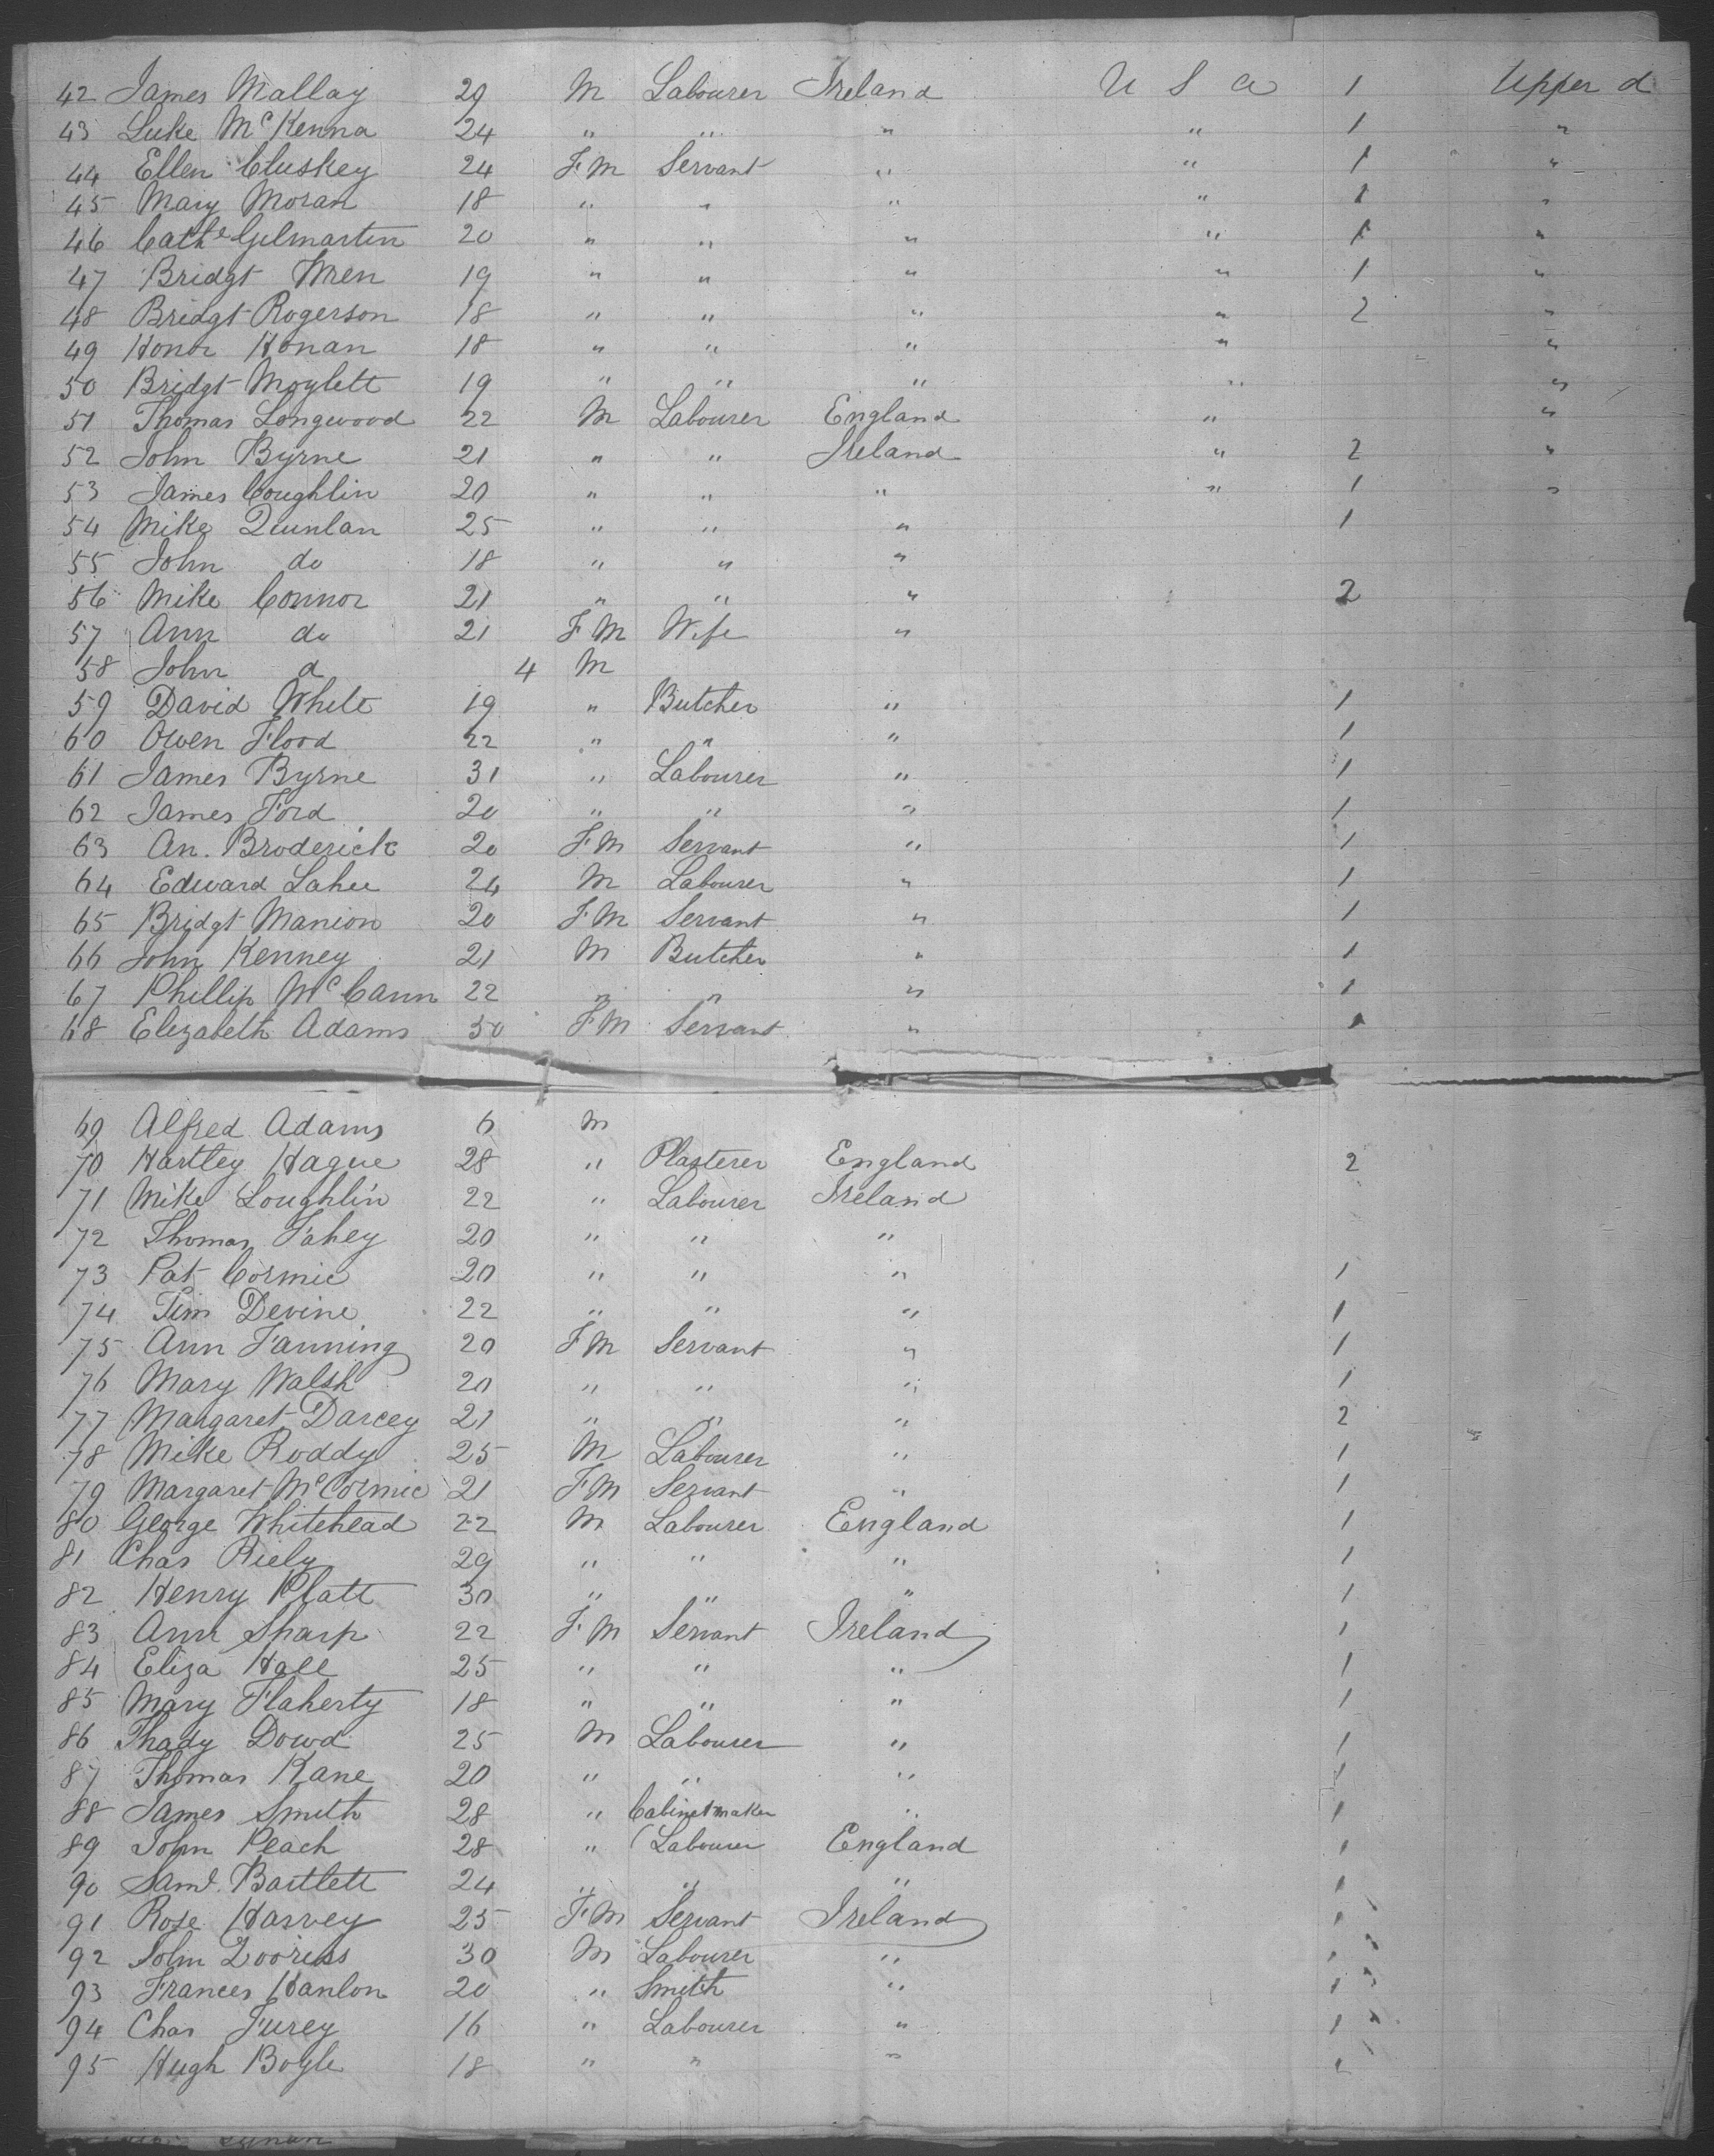 42 James Mallay 29 M Labourer Ireland U S A 1 Upper d
43 Luke McKenna 24 " " " " 1 "
44 Ellen Cluskey 24 F M Servant " " 1 "
45 Mary Moran 18 " " " " 1 "
46 Cathe Gilmartin 20 " " " " 1 "
47 Bridgt Wren 19 " " " " 1 "
48 Bridgt Rogerson 18 " " " " 2 "
49 Honor Honan 18 " " " " "
50 Bridgt Moylett 19 " " " " "
51 Thomas Longwood 22 M Labourer England " "
52 John Byrne 21 " " Ireland " 2 "
53 James Coughlin 20 " " " " 1 "
54 Mike Quinlan 25 " " " 1
55 John do 18 " " "
56 Mike Connor 21 " " " 2
57 Ann do 21 F M Wife "
58 John d 4 M
59 David White 19 " Butcher " 1
60 Owen Flood 22 " " " 1
61 James Byrne 31 " Labourer " 1
62 James Ford 20 " " " 1
63 An. Broderick 20 F M Servant " 1
64 Edward Lahee 24 M Labourer " 1
65 Bridgt Manion 20 F M Servant " 1
66 John Kenney 21 M Butcher " 1
67 Phillip McCann 22 " " " 1
68 Elizabeth Adams 30 F M Servant " 1
69 Alfred Adams 6 M
70 Hartley Hague 28 " Plasterer England 2
71 Mike Loughlin 22 " Labourer Ireland
72 Thomas Fahey 20 " " "
73 Pat Cormic 20 " " " 1
74 Tim Devine 22 " " " 1
75 Ann Fanning 20 F M Servant " 1
76 Mary Walsh 20 " " " 1
77 Margaret Darcey 21 " " " 2
78 Mike Roddy 25 M Labourer " 1
79 Margaret McCormic 21 F M Servant " 1
80 George Whitehead 22 M Labourer England 1
81 Chas Riely 29 " " " 1
82 Henry Platt 30 " " " 1
83 Ann Sharp 22 F M Servant Ireland 1
84 Eliza Hall 25 " " " 1
85 Mary Flaherty 18 " " " 1
86 Thady Dowd 25 M Labourer " 1
87 Thomas Kane 20 " " " 1
88 James Smith 28 " Cabinetmaker " 1
89 John Peach 28 " Labourer England 1
90 Saml. Bartlett 24 " " " 1
91 Rose Harvey 25 F M Servant Ireland 1
92 John 30 M Labourer " 1
93 Frances Hanlon 20 " Smith " 1
94 Chas Furey 16 " Labourer " 1
95 Hugh Bogle 18 " " " 1